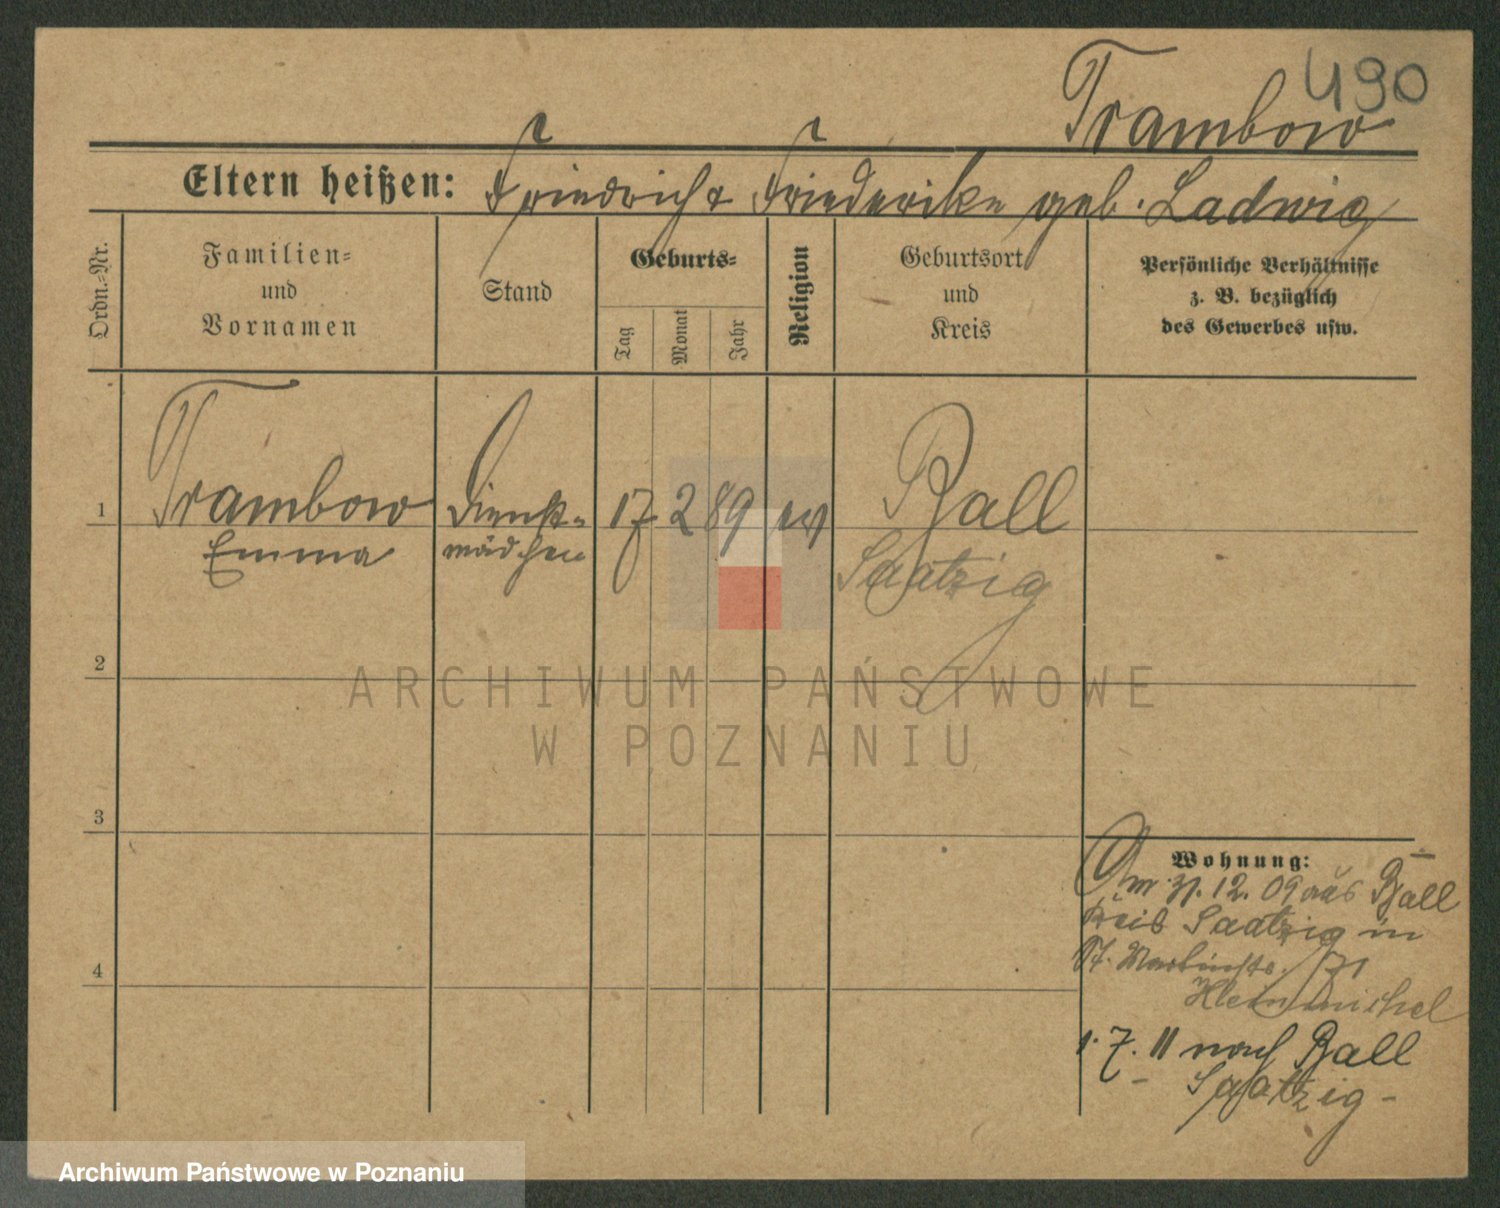 490
Trambow
Eltern heißen: Friedrich & Friederike geb. Ladwig
Ordn.-Nr.
Familien-
und
Vornamen
Stand
Geburts-
Tag
Monat
Jahr
Religion
Geburtsort
und
Kreis
Persönliche Verhältnisse
z. B. bezüglich
des Gewerbes usw.
1
Trambow
Emma
Dienst-
mädchen
17. 2 89
ev
Ball
Saatzig
2
3
4
Wohnung:
Am 31. 12. 09 aus Ball
Kreis Saatzig in
St. Martinstr.
1. 7. 11 nach Ball
Saatzig -
ARCHIWUM PAŃSTWOWE
W POZNANIU
Archiwum Państwowe w Poznaniu